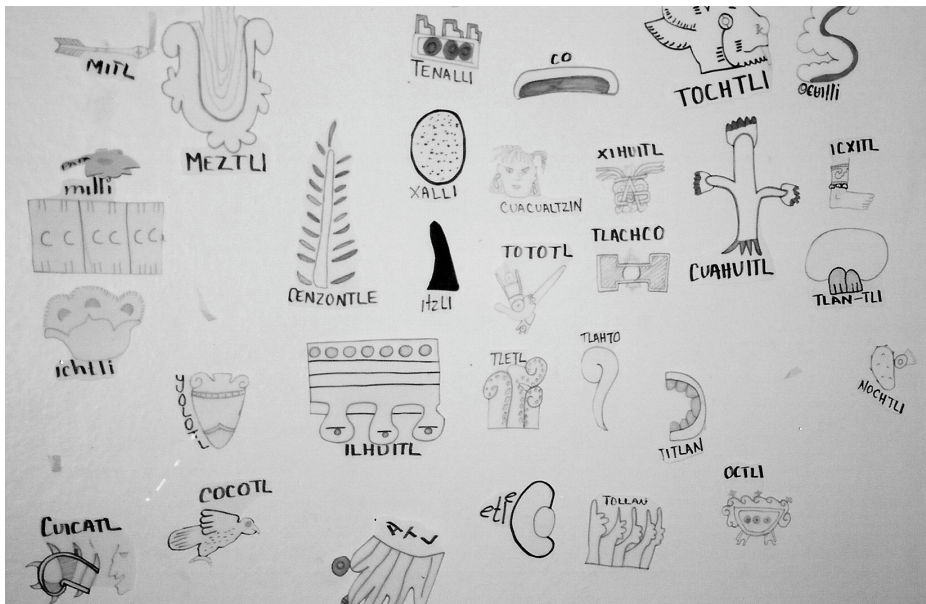 MITL
MEZTLI
TENALLI
CO
TOCHTLI
OCUILLI
milli
C C C C C
XALLI
CUACUALTZIN
XIHUITL
ICXITL
CENZONTLE
ItzLI
TOTOTL
TLACHCO
CUAHUITL
TLAN-TLI
ichtli
YOLOTL
ILHUITL
TLETL
TLAHTO
TITLAN
NOCHTLI
CUICATL
COCOTL
ATL
etl
TOLLAN
OCTLI